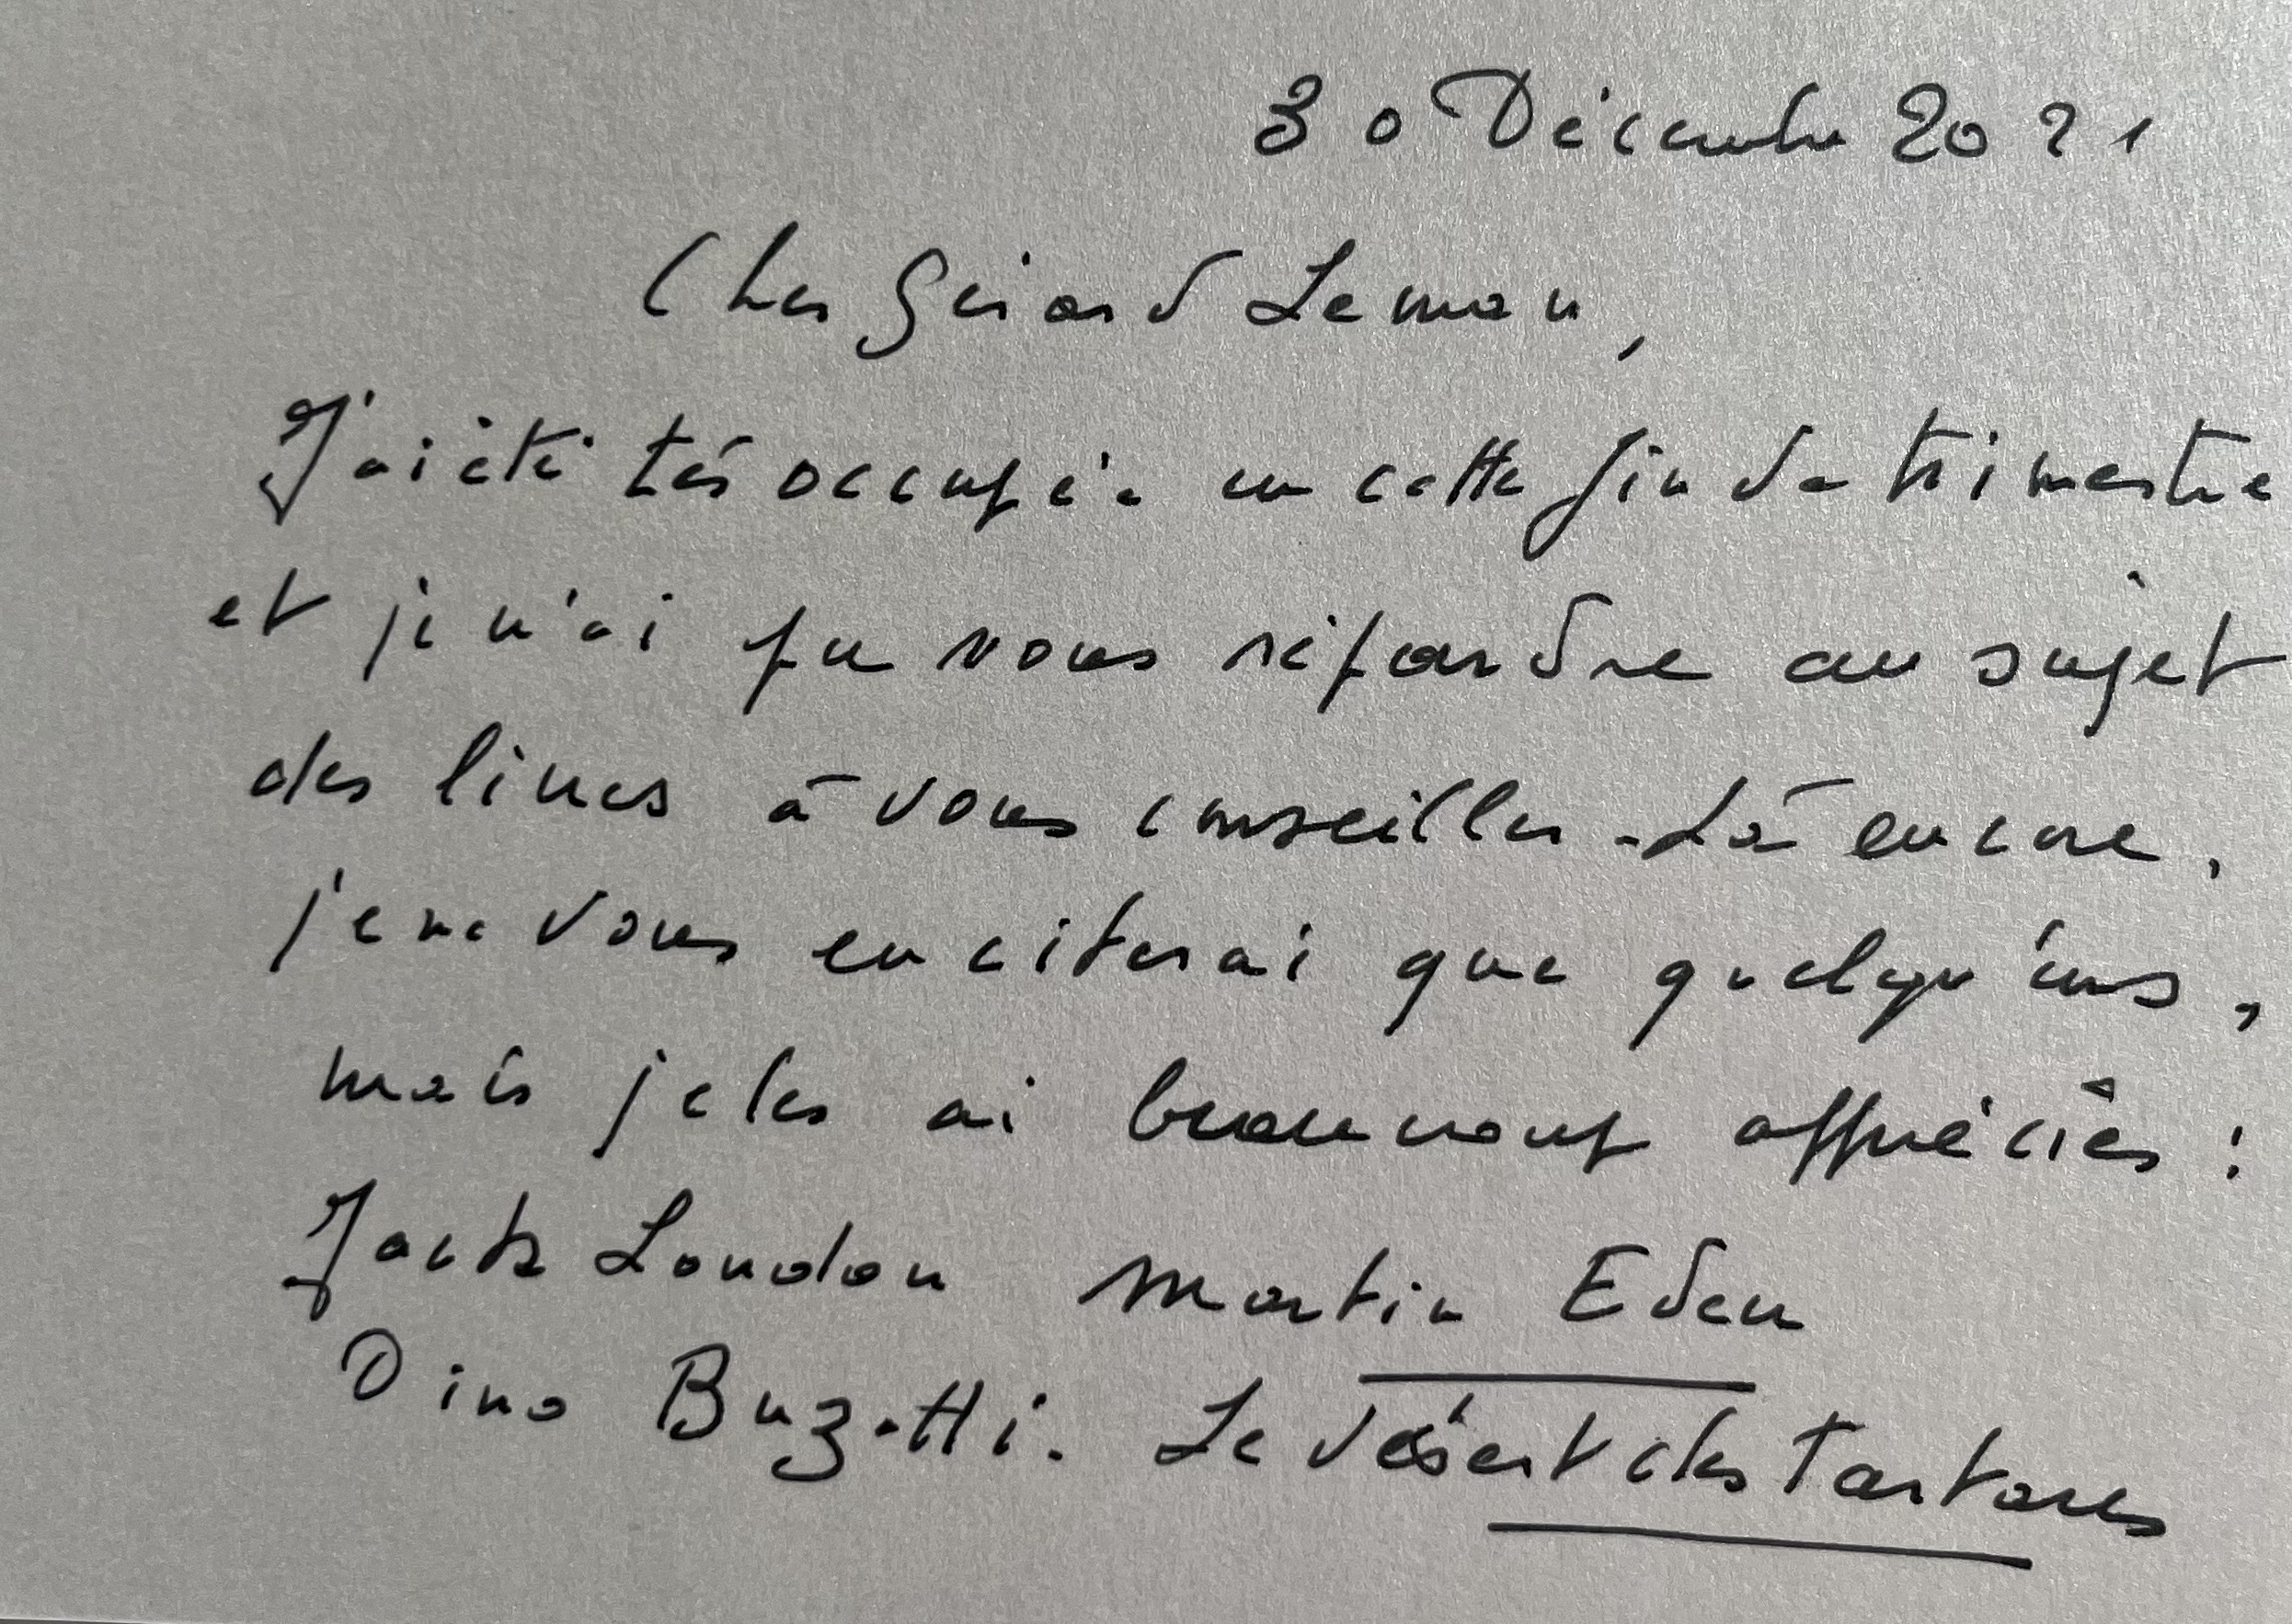 30 Décembre 2021
Cher Gérard Leman,
J'ai été très occupée en cette fin de trimestre
et je n'ai pu vous répondre au sujet
des livres à vous conseiller. Là encore,
je ne vous en citerai que quelqu'uns,
mais je les ai beaucoup appréciés :
Jack London Martin Eden
Dino Buzatti. Le désert des Tartares